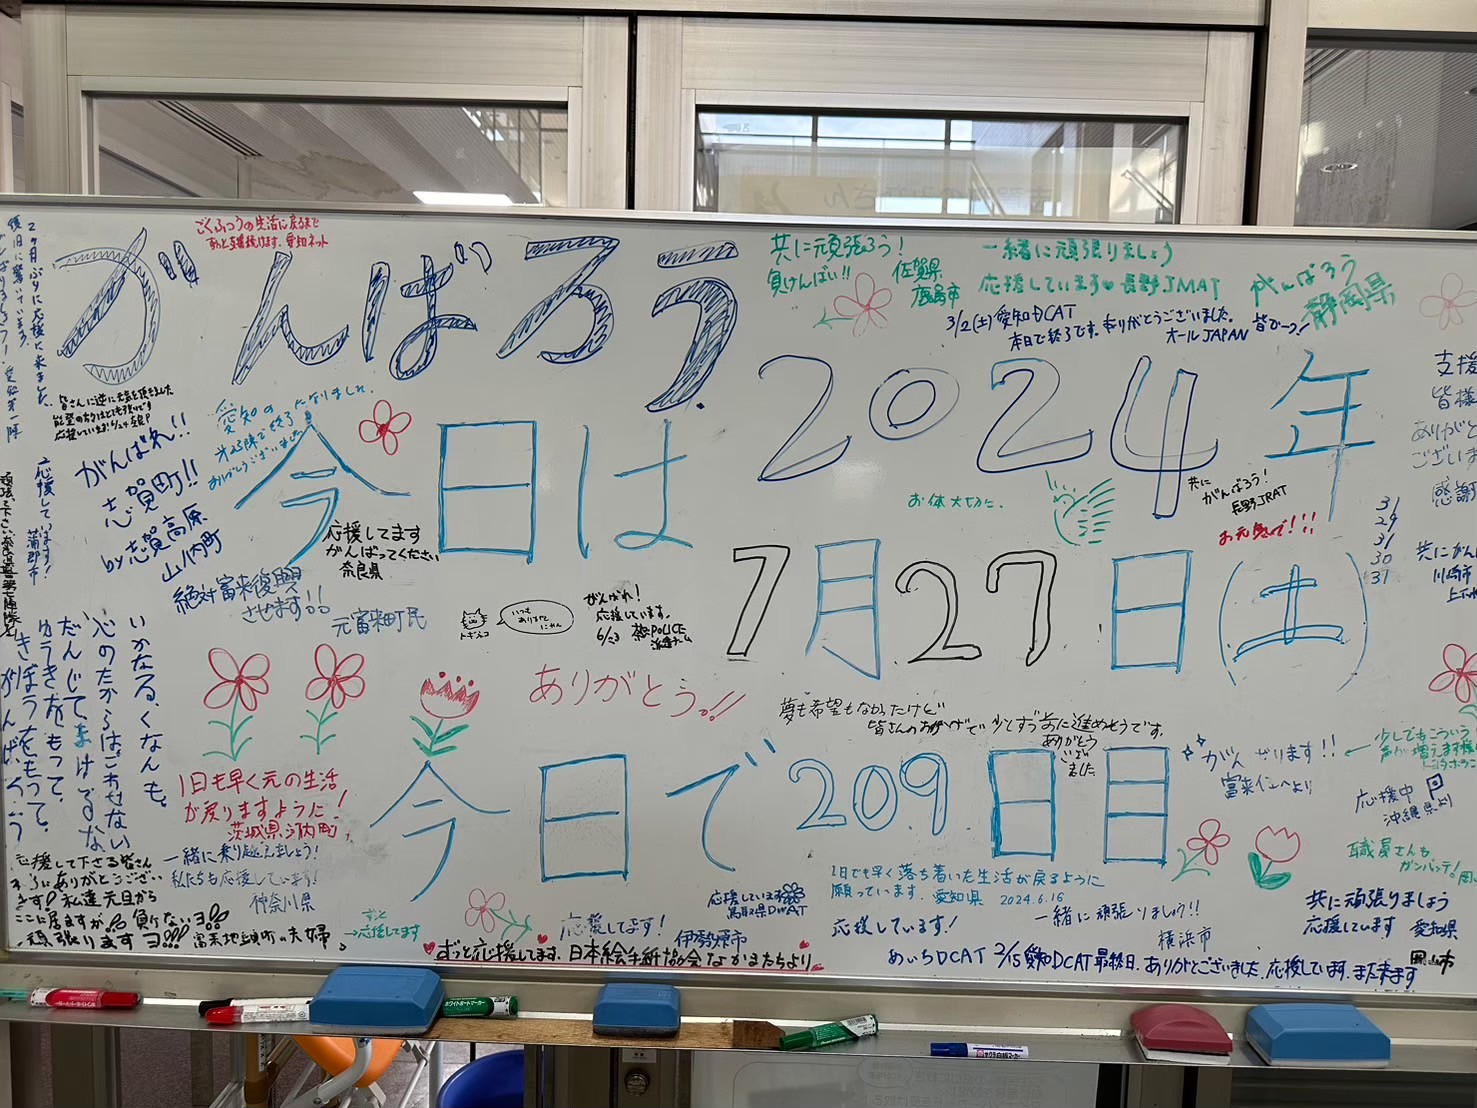 ごくふつうの生活に戻るまで
ずっと支援続けます。愛知ネット
がんばろう
2ヶ月ぶりに応援に来ました。
復旧に驚いています。
共に頑張ろう!
負けんばい!!
佐賀県
鹿島市
一緒に頑張りましょう
応援しています♥長野JMAT
がんばろう
静岡県
3/2(土)愛知DCAT
本日で終了です。ありがとうございました。
オールJAPAN
皆でーっ!
2024年
皆さんに逆に元気を頂きました
能登の方々はとても強いです
応援しています!6/24 奈良P
がんばれ!!
志賀町!!
by志賀高原
山ノ内町
応援しています!
蒲郡市
今日は
応援してます
がんばってください
奈良県
絶対富来復興
させます!!
元富来町民
お体大切に。
共に
がんばろう!
長野JRAT
お元気で!!!
31
29
31
30
31
7月27日(土)
トギネコ
いつも
ありがと
にゃん
がんばれ!
応援しています。
6/23
POLICE
ありがとう!!
いかなる、くなんも、
心のたからはこわせない
だんじてまけるな
ゆうきをもって、
きぼうをもって、
がんばろう
夢も希望もなかったけど
皆さんのおかげで少しずつ前に進めそうです。
ありがとう
ござい
ました
今日で209日目
がんばります!!
富来仁へより
少しでもこういう
声が増えます様に
応援中
沖縄県より
職員さんも
ガンバッテ!
1日も早く元の生活
が戻りますように!
茨城県河内町
一緒に乗り越えましょう!
私たちも応援しています!
神奈川県
応援して下さる皆さん
本当にありがとうござい
ます!私達元旦から
ここに居ますが、負けないヨ!!
頑張りますヨ!!!
富来地頭町の夫婦
ずっと
→応援してます
応援してます!
伊勢原市
応援しています
鳥取県DWAT
ずっと応援してます。日本絵手紙協会なかまたちより
1日でも早く落ち着いた生活が戻るように
願っています。愛知県 2024.6.16
応援しています!
一緒に頑張りましょう!!
横浜市
共に頑張りましょう
応援しています 愛知県
岡山市
あいちDCAT 3/15愛知DCAT最終日。ありがとございました。応援しています。また来ます
支援
皆様
ありがと
ございま
感謝
共にがん
川崎市